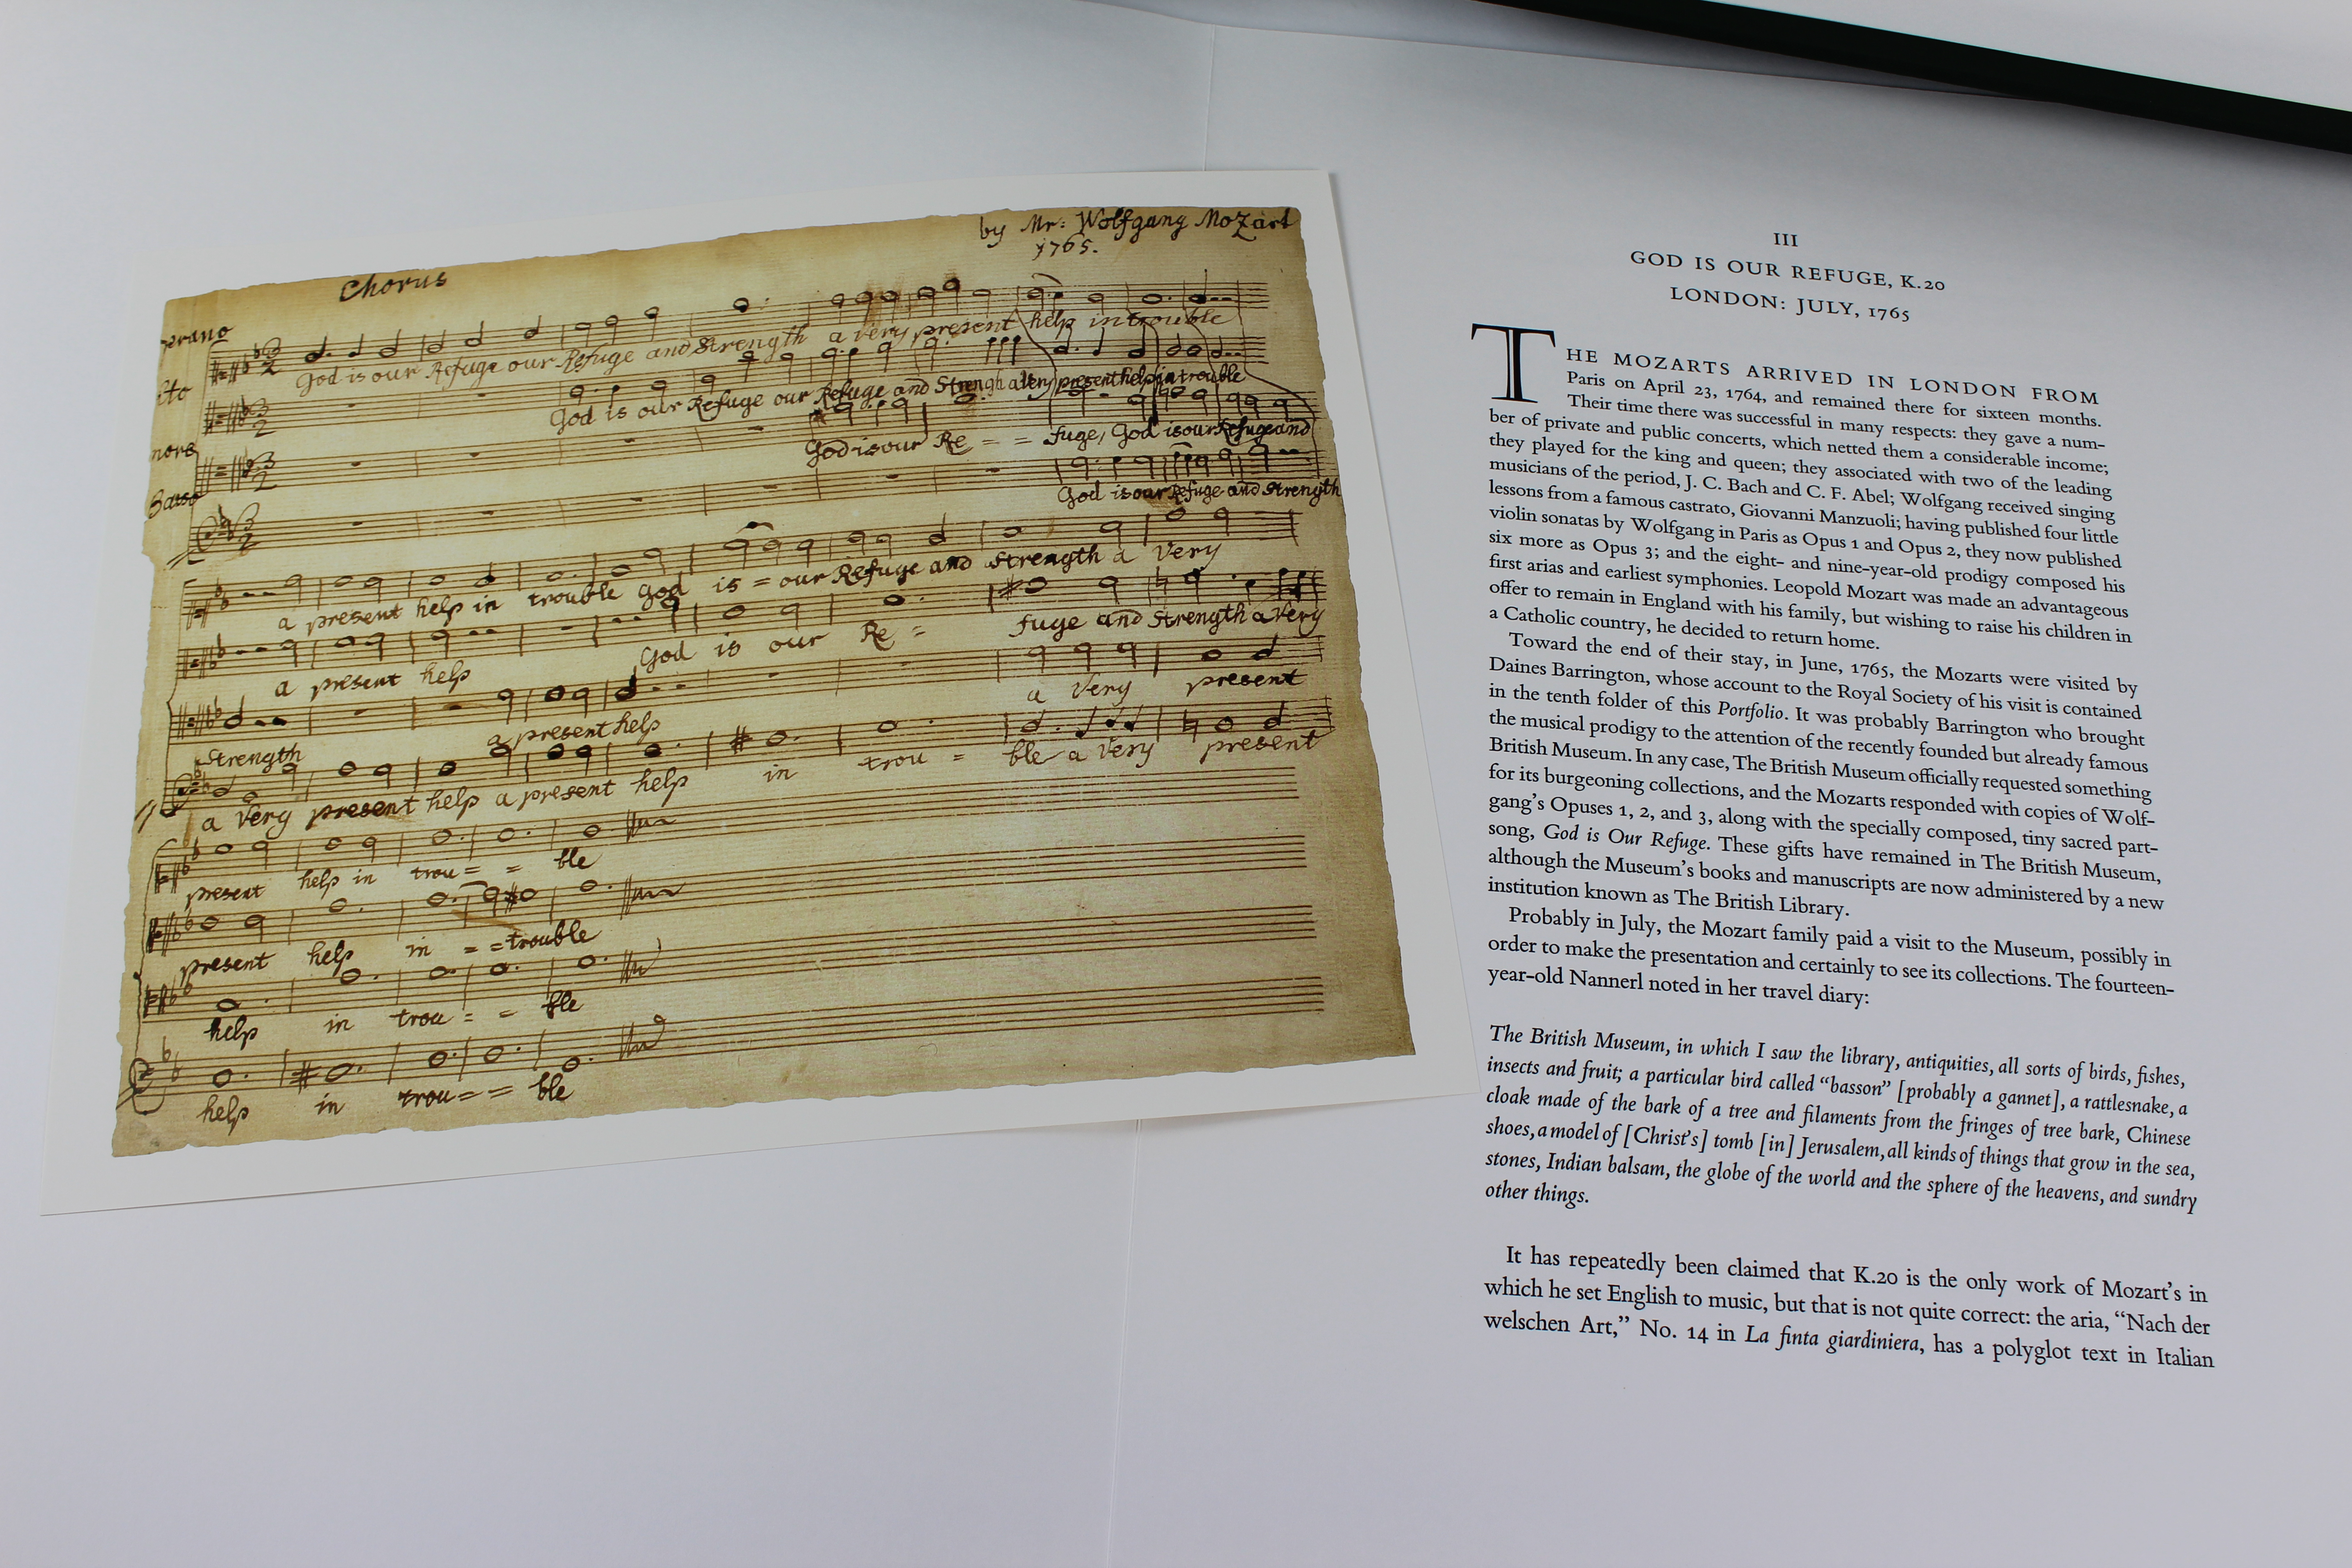 by Mr: Wolfgang Mozart
1765.
Chorus
prano
God is our Refuge our Refuge and Strength a very present help in trouble
lto
God is our Refuge our Refuge and Strengh a Very present help in trouble
nore
God is our Re = = fuge, God is our Refuge and
Basso
God is our Refuge and Strength
a present help in trouble God is = our Refuge and Strength a Very
a present help God is our Re = fuge and Strength a Very
Strength a present help a Very present
a Very present help a present help in trou = ble a Very present
present help in trou = = ble
present help in = = trouble
help in trou = = ble
help in trou = = ble
III
GOD IS OUR REFUGE, K.20
LONDON: JULY, 1765
THE MOZARTS ARRIVED IN LONDON FROM
Paris on April 23, 1764, and remained there for sixteen months.
Their time there was successful in many respects: they gave a num-
ber of private and public concerts, which netted them a considerable income;
they played for the king and queen; they associated with two of the leading
musicians of the period, J. C. Bach and C. F. Abel; Wolfgang received singing
lessons from a famous castrato, Giovanni Manzuoli; having published four little
violin sonatas by Wolfgang in Paris as Opus 1 and Opus 2, they now published
six more as Opus 3; and the eight- and nine-year-old prodigy composed his
first arias and earliest symphonies. Leopold Mozart was made an advantageous
offer to remain in England with his family, but wishing to raise his children in
a Catholic country, he decided to return home.
Toward the end of their stay, in June, 1765, the Mozarts were visited by
Daines Barrington, whose account to the Royal Society of his visit is contained
in the tenth folder of this Portfolio. It was probably Barrington who brought
the musical prodigy to the attention of the recently founded but already famous
British Museum. In any case, The British Museum officially requested something
for its burgeoning collections, and the Mozarts responded with copies of Wolf-
gang's Opuses 1, 2, and 3, along with the specially composed, tiny sacred part-
song, God is Our Refuge. These gifts have remained in The British Museum,
although the Museum's books and manuscripts are now administered by a new
institution known as The British Library.
Probably in July, the Mozart family paid a visit to the Museum, possibly in
order to make the presentation and certainly to see its collections. The fourteen-
year-old Nannerl noted in her travel diary:
The British Museum, in which I saw the library, antiquities, all sorts of birds, fishes,
insects and fruit; a particular bird called "basson" [probably a gannet], a rattlesnake, a
cloak made of the bark of a tree and filaments from the fringes of tree bark, Chinese
shoes, a model of [Christ's] tomb [in] Jerusalem, all kinds of things that grow in the sea,
stones, Indian balsam, the globe of the world and the sphere of the heavens, and sundry
other things.
It has repeatedly been claimed that K.20 is the only work of Mozart's in
which he set English to music, but that is not quite correct: the aria, "Nach der
welschen Art," No. 14 in La finta giardiniera, has a polyglot text in Italian